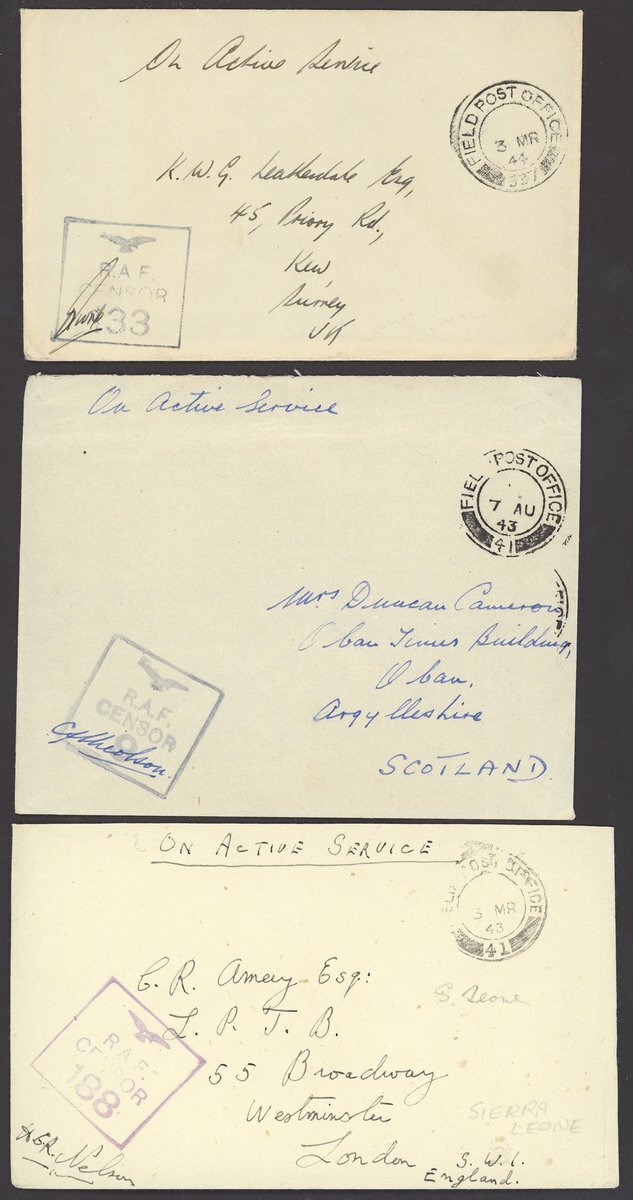 On Active Service
FIELD POST OFFICE
3 MR
44
337
K.W.G. Leatherdale Esq,
45, Priory Rd.,
Kew,
Surrey
UK
R.A.F.
CENSOR
33
On Active Service
FIELD POST OFFICE
7 AU
43
41
Mrs Duncan Cameron
Oban Times Building,
Oban.
Argyllshire
SCOTLAND.
R.A.F.
CENSOR
9
ON ACTIVE SERVICE
FIELD POST OFFICE
3 MR
43
41
C. R. Amey Esq:
L. P. T. B.
S. Leone
55 Broadway
Westminster
SIERRA
LEONE
London S.W.1.
England.
R.A.F.
CENSOR
188
Nelson